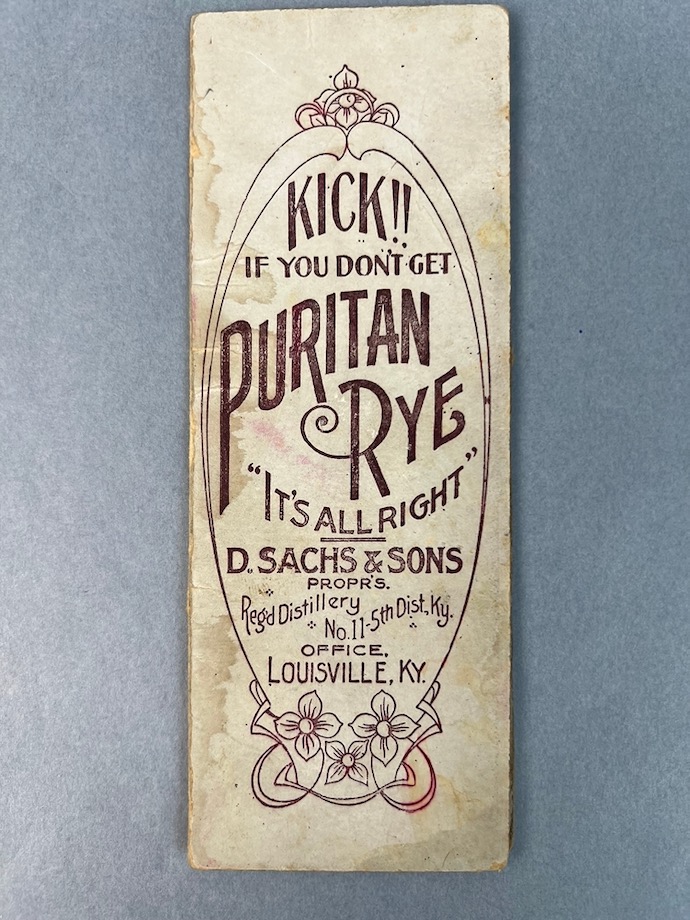 KICK!!
IF YOU DON'T GET
PURITAN
RYE
"IT'S ALL RIGHT"
D. SACHS & SONS
PROPR'S.
Reg'd Distillery
No. 11-5th Dist, Ky.
OFFICE,
LOUISVILLE, KY.